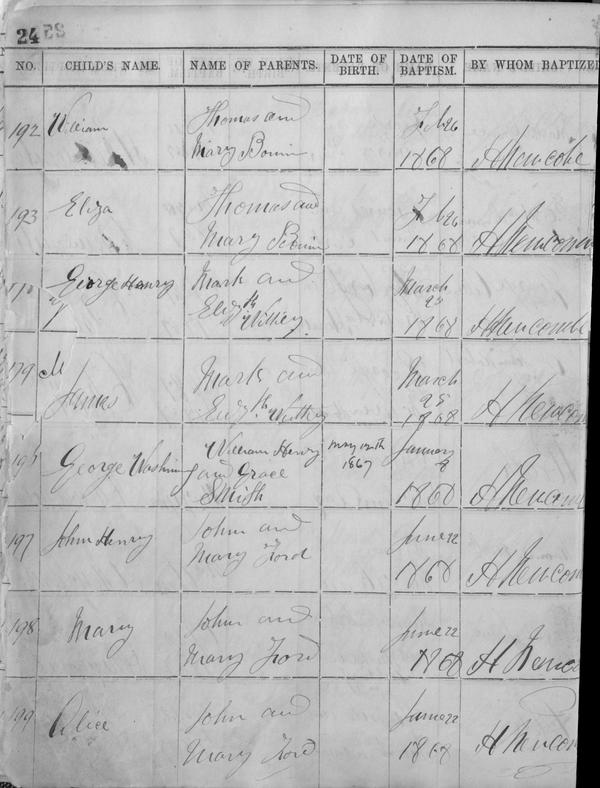 24
NO. CHILD'S NAME. NAME OF PARENTS. DATE OF BIRTH. DATE OF BAPTISM. BY WHOM BAPTIZED
192 William Thomas and Feb 26
Mary 1868 H Newcombe
193 Eliza Thomas and Feb 26
Mary 1868 H Newcomb
George Henry Mark and March
Elizth 25
1868 H Newcomb
179 M Mark and March
James Elizth 25
1868 H Newcom
George Washing William Henry May 12th January
and Grace 1867 8
Smith 1868 H Newcom
197 John Henry John and June 22
Mary Ford 1868 H Newcom
198 Mary John and June 22
Mary Ford 1868 H Newco
199 Alice John and June 22
Mary Ford 1868 H Newcom